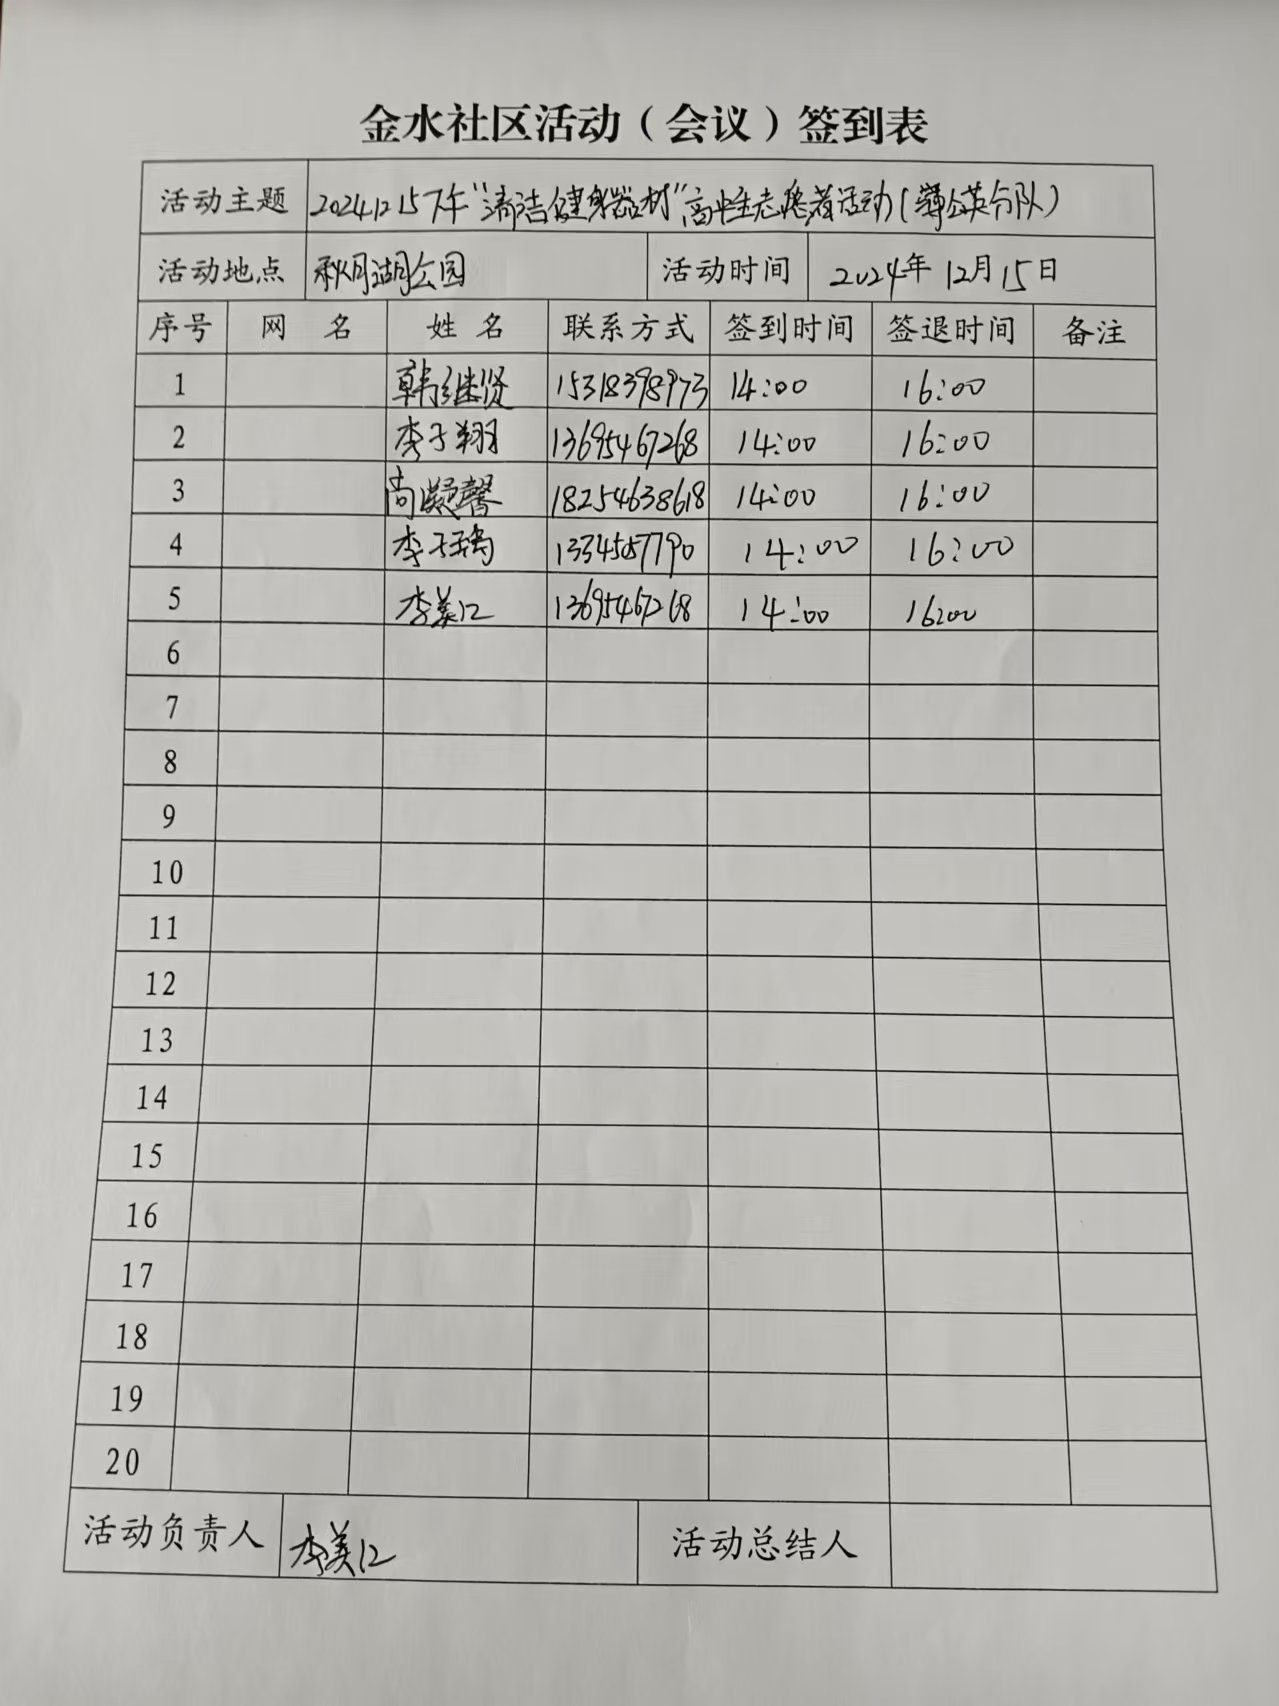 金水社区活动（会议）签到表
活动主题 2024.12.15下午“清洁健身器材”高中生志愿者活动（蒲公英分队）
活动地点 秋月湖公园 活动时间 2024年12月15日
序号 网名 姓名 联系方式 签到时间 签退时间 备注
1 韩继贤 15318398973 14:00 16:00
2 李子翔 13695467268 14:00 16:00
3 尚凝馨 18254638618 14:00 16:00
4 14:00 16:00
5 李美江 13695467268 14:00 16:00
6
7
8
9
10
11
12
13
14
15
16
17
18
19
20
活动负责人 李美江 活动总结人